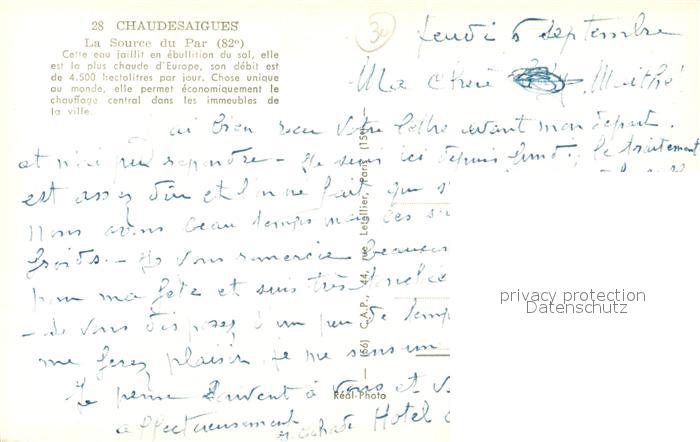 28 CHAUDESAIGUES
La Source du Par (82°)
Cette eau jaillit en ébullition du sol, elle
est la plus chaude d'Europe, son débit est
de 4.500 hectolitres par jour. Chose unique
au monde, elle permet économiquement le
chauffage central dans les immeubles de
la ville.
30
Jeudi 5 Septembre
Ma Chère Maïthé
J'ai bien reçu votre lettre avant mon départ.
et n'ai pu répondre - Je suis ici depuis lundi, le traitement
est assez dur et l'on ne fait que s'
Nous avons beau temps mais les
froids - Je vous remercie beaucou
pour ma fête et suis très
de vous disposez d'un peu de temps
me ferez plaisir je me sens un
Je pense souvent à vous et v
affectueusement
Hotel
(66) C.A.P., 44, rue Letellier, Paris (15e)
Réal-Photo
privacy protection
Datenschutz